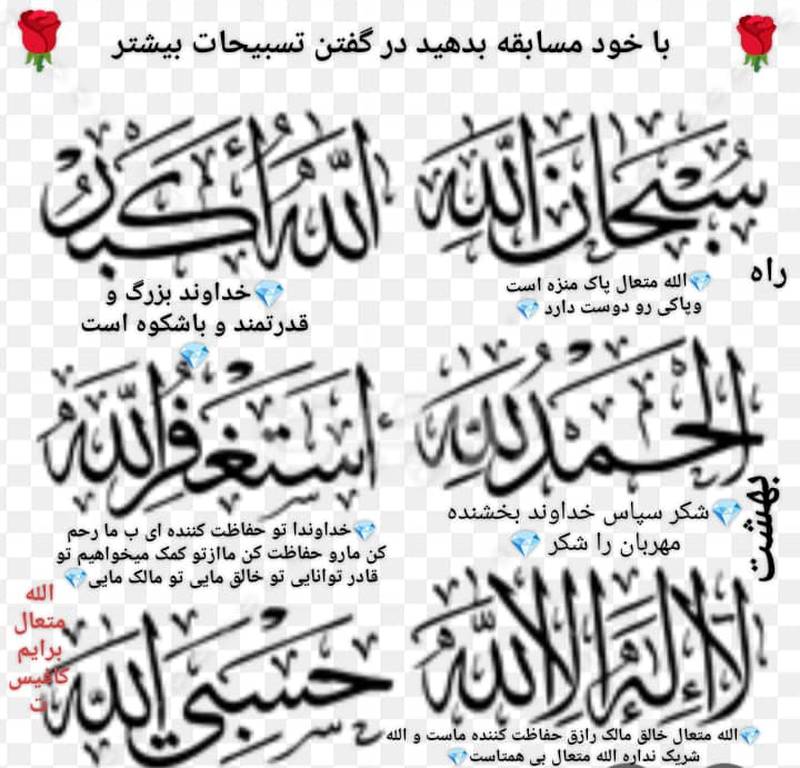 با خود مسابقه بدهید در گفتن تسبیحات بیشتر
سُبْحَانَ اللَّه
الله متعال پاک منزه است
وپاکی رو دوست دارد
اللَّهُ أَكْبَرُ
خداوند بزرگ و
قدرتمند و باشکوه است
راه
الْحَمْدُ لِلَّهِ
شکر سپاس خداوند بخشنده
مهربان را شکر
أَسْتَغْفِرُ اللَّهَ
خداوندا تو حفاظت کننده ای ب ما رحم
کن مارو حفاظت کن ماازتو کمک میخواهیم تو
قادر توانایی تو خالق مایی تو مالک مایی
بهشت
لَا إِلَهَ إِلَّا اللَّه
الله متعال خالق مالک رازق حفاظت کننده ماست و الله
شریک نداره الله متعال بی همتاست
حَسْبِيَ اللَّه
الله
متعال
برایم
کافیس
ت